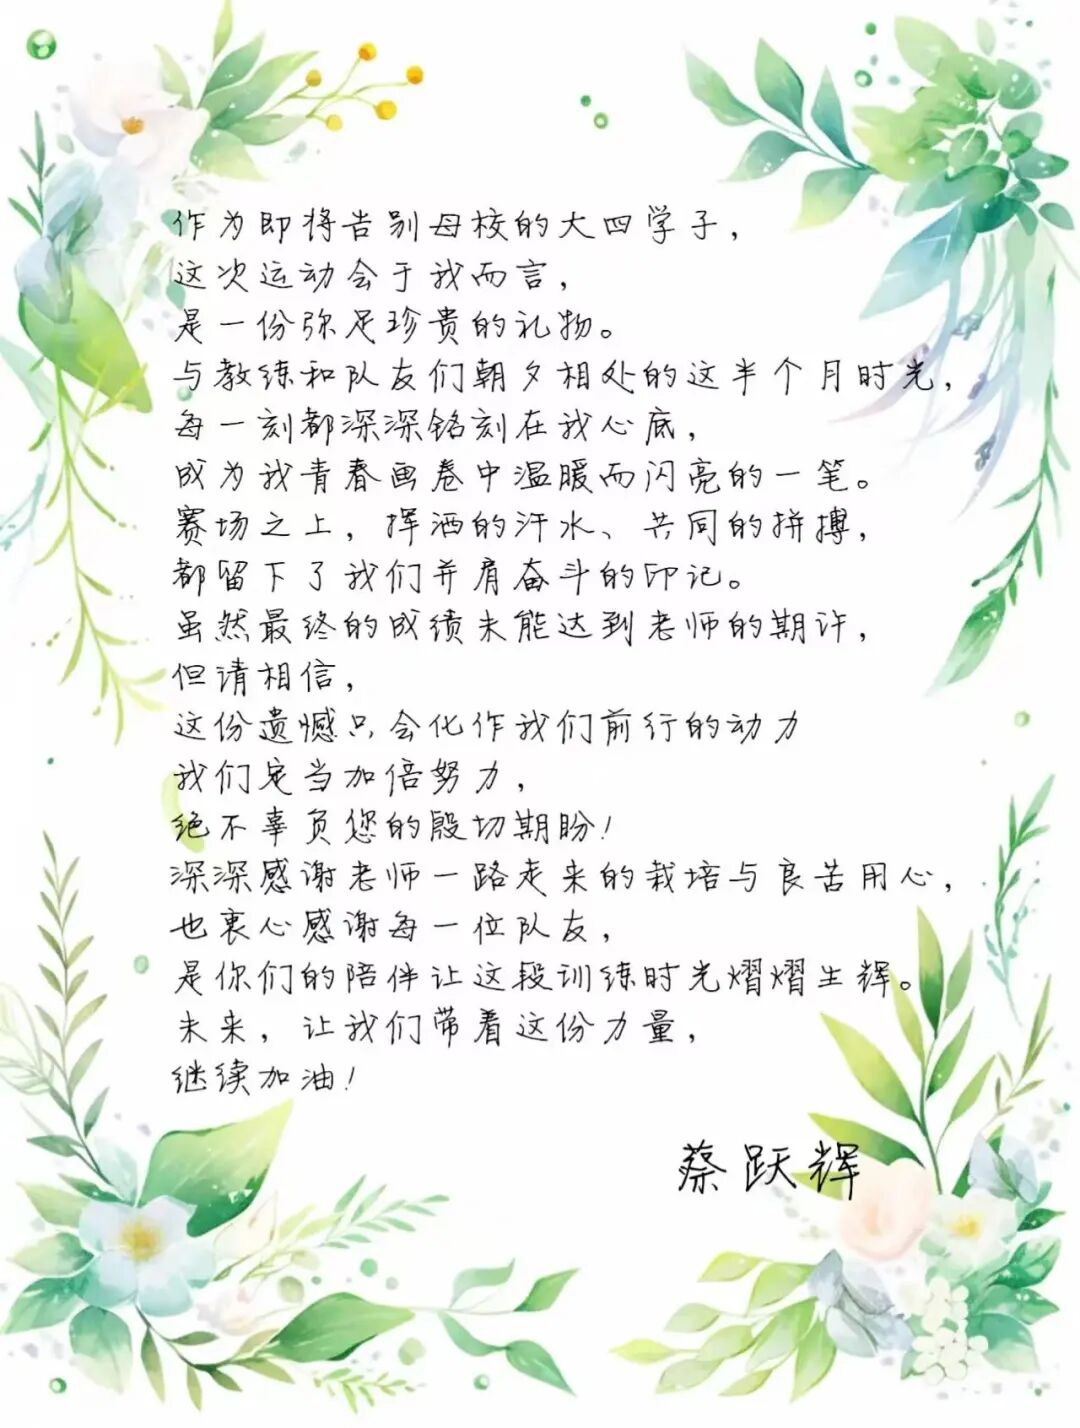 作为即将告别母校的大四学子，
这次运动会于我而言，
是一份弥足珍贵的礼物。
与教练和队友们朝夕相处的这半个月时光，
每一刻都深深铭刻在我心底，
成为我青春画卷中温暖而闪亮的一笔。
赛场之上，挥洒的汗水、共同的拼搏，
都留下了我们并肩奋斗的印记。
虽然最终的成绩未能达到老师的期许，
但请相信，
这份遗憾只会化作我们前行的动力
我们定当加倍努力，
绝不辜负您的殷切期盼！
深深感谢老师一路走来的栽培与良苦用心，
也衷心感谢每一位队友，
是你们的陪伴让这段训练时光熠熠生辉。
未来，让我们带着这份力量，
继续加油！
蔡跃辉